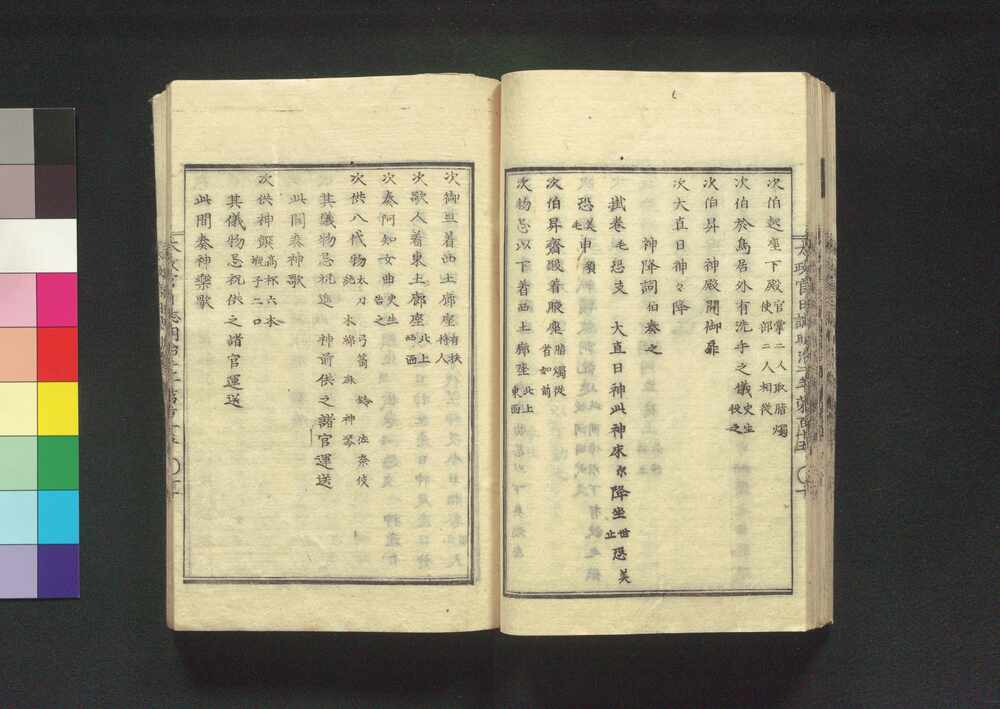 次伯起座下殿官掌二人取脂燭使部二人相従
次伯於鳥居外有洗手之儀史生役之
次伯昇神殿開御扉
次大直日神々降
神降詞伯奏之
掛巻毛恐支大直日神此神床尓降坐世止恐美
恐美毛申須
次伯昇齋殿着腋座脂燭従者如前
次物忌以下着西上廊座北上東面
次御巫着西土廊座有扶持人
次歌人着東上廊座北上西面
次奏阿知女曲史生告之
次供八代物太刀弓箭鈴佐奈伎絁木綿麻神琴
其儀物忌祝進神前供之諸官運送
此間奏神歌
次供神饌高杯六本瓶子二口
其儀物忌祝供之諸官運送
此間奏神樂歌